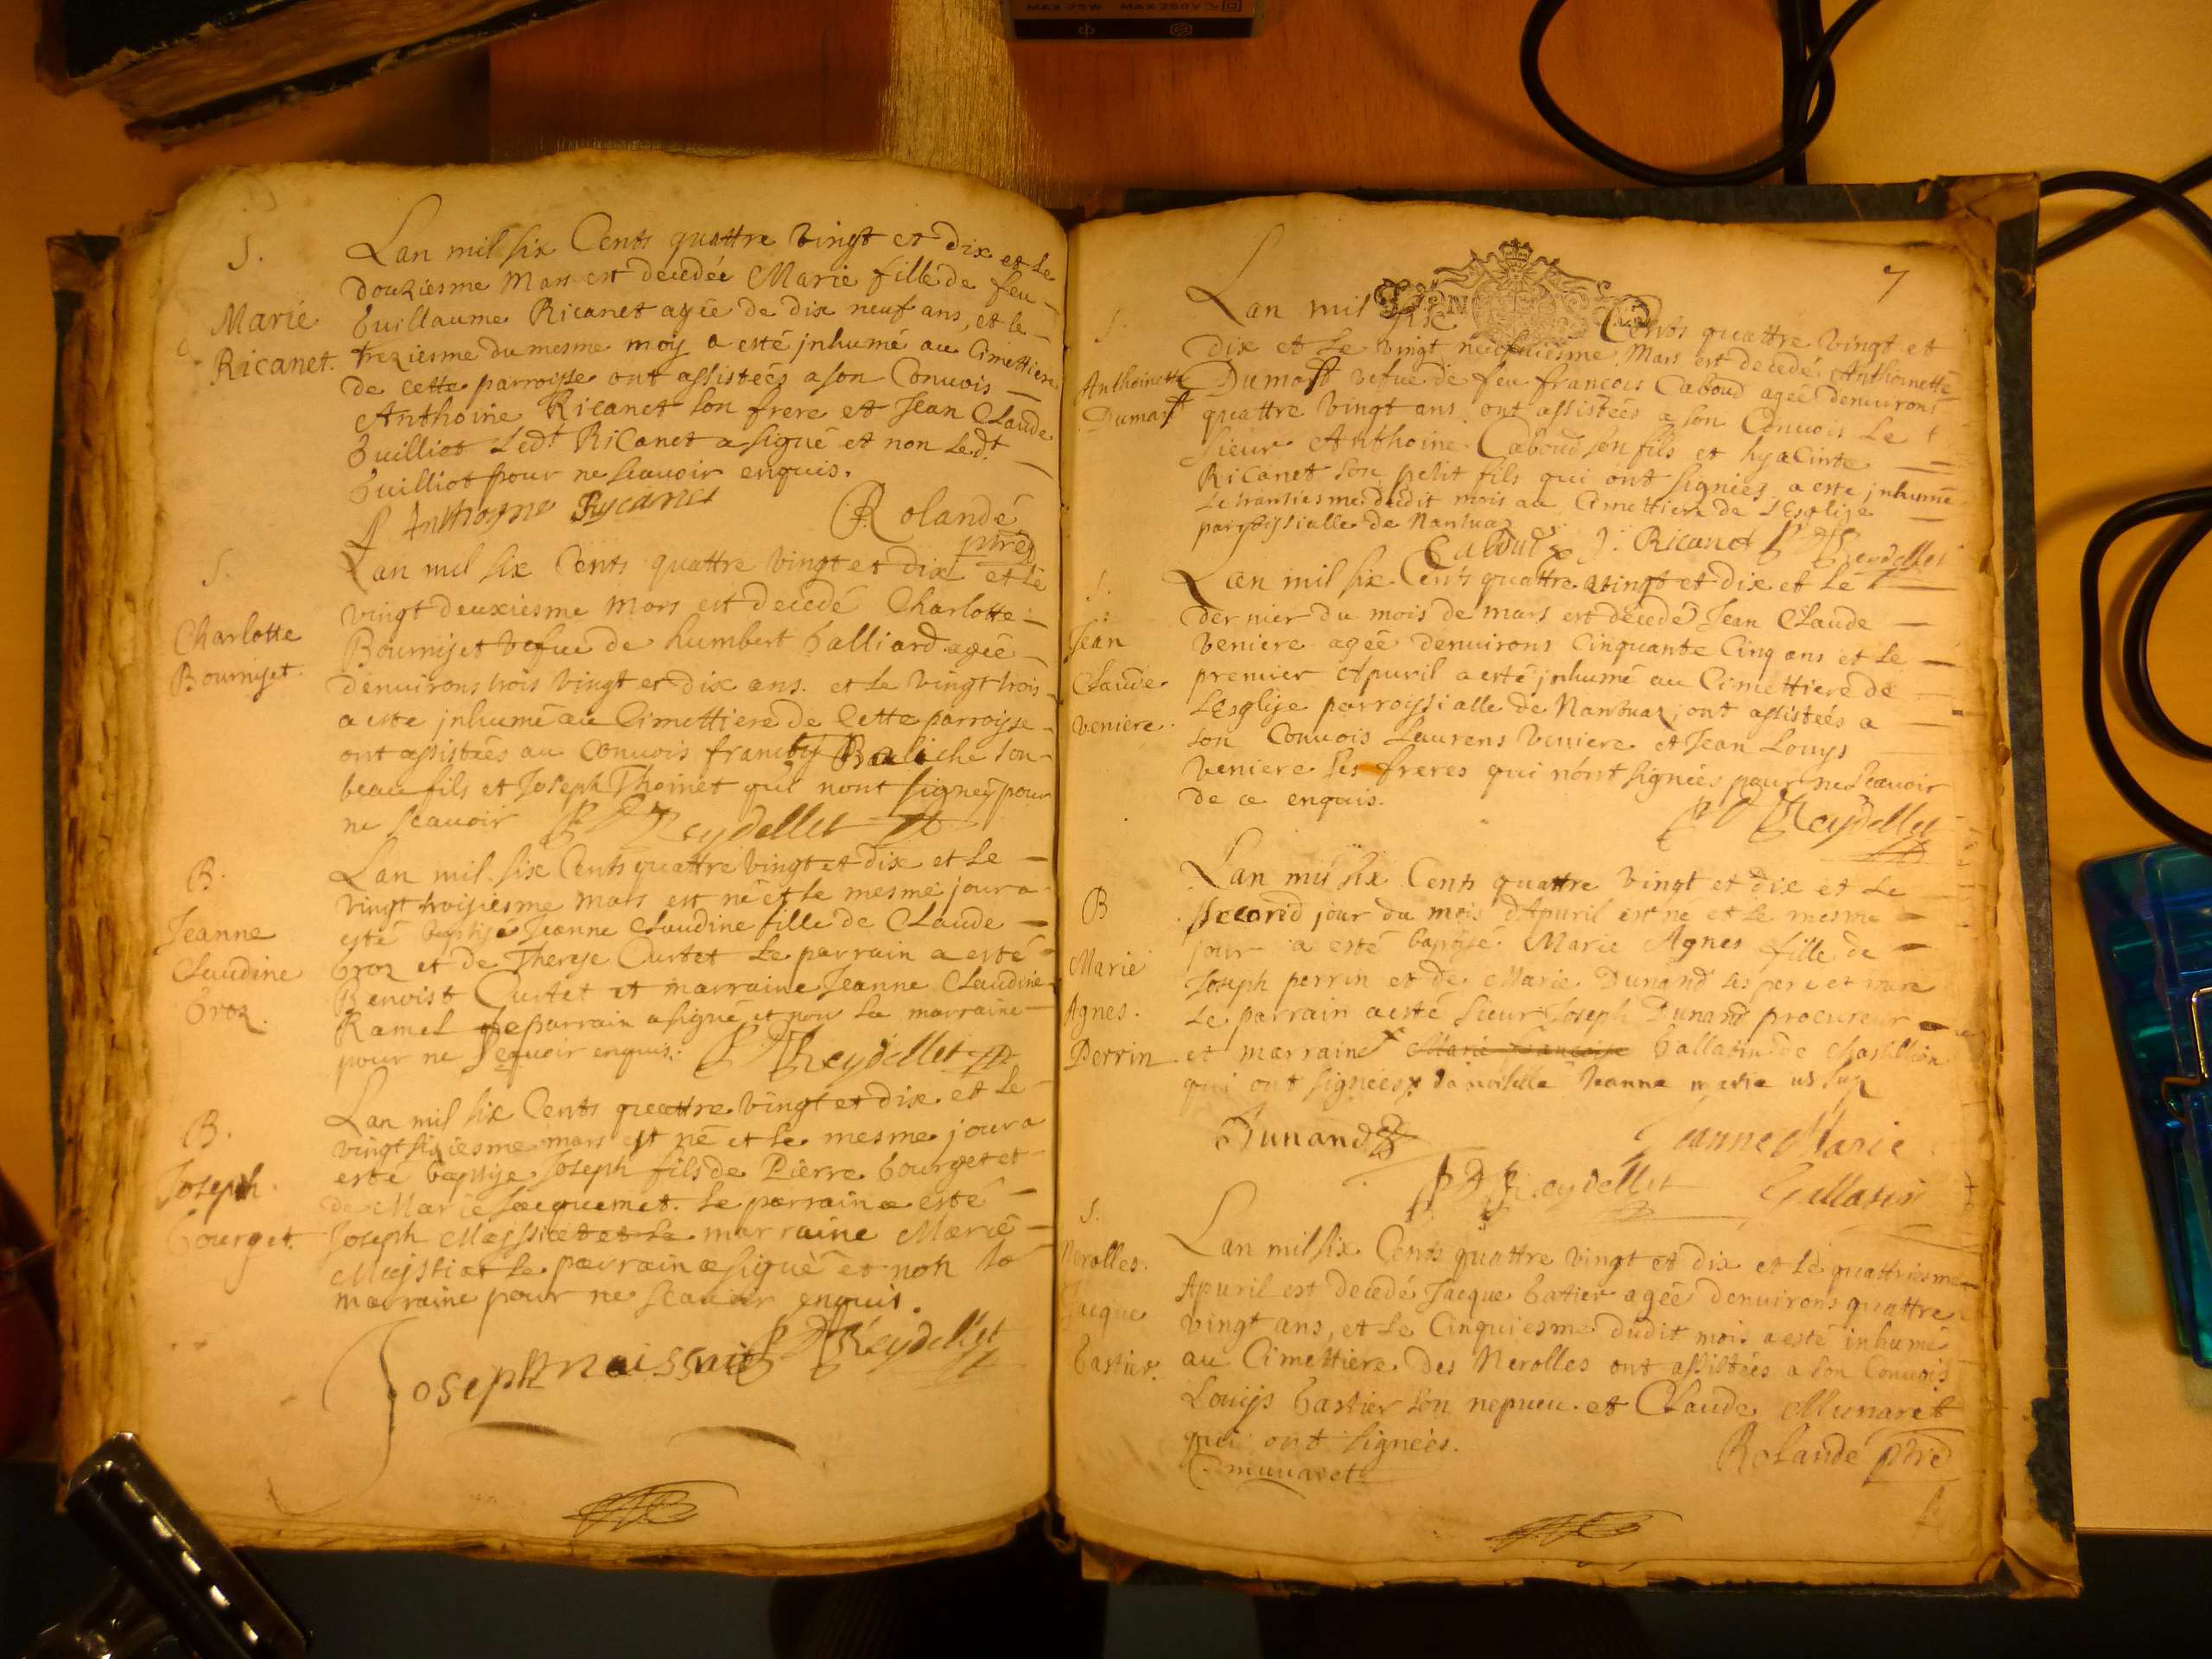 MAX 75W MAX 250V
S.
Marie
Ricanet.
Lan mil six Cents quattre vingt et dix et le
douziesme Mars est decedée Marie fille de feu
Guillaume Ricanet agée de dix neuf ans, et le
treziesme du mesme moy a esté jnhumé au Cimettiere
de Cette parroisse ont assisteés a son Conuois
Anthoine Ricanet son frere et Jean Claude
Guilliot Ledt Ricanet a signé et non Ledt
Guilliot pour ne scauoir enquis.
Anthoyne Rycanet
Rolandé
ptre
S.
Charlotte
Bournijet.
Lan mil six Cents quattre vingt et dix et le
vingt deuxiesme Mars est decedé Charlotte
Bournijet vefue de humbert Galliard ageé
denuirons trois vingt et dix ans. et le vingt trois
a este jnhumé au Cimettiere de Cette parroisse
ont assisteés au Conuois Baliche son
beau fils et Joseph Thoinet qui nont signey pour
ne scauoir
Reydellet
B.
Jeanne
Claudine
Groz.
Lan mil six Cents quattre vingt et dix et le
vingt troisiesme Mars est né et le mesme jour a
esté baptisé Jeanne Claudine fille de Claude
Groz et de Therese Curtet Le parrain a esté
Benoist Curtet et marraine Jeanne Claudine
Ramel Le parrain a signé et non La marraine
pour ne scauoir enquis.
Reydellet
B.
Joseph
Gourget.
Lan mil six Cents quattre vingt et dix et le
vingt sixiesme mars est né et le mesme jour a
esté baptise Joseph fils de Pierre Gourget et
de Marie Jacquemet. Le parrain a esté
Joseph Maissiat et La marraine Marie
Maissiat Le parrain a signé et non la
marraine pour ne scauoir enquis.
Reydellet
Joseph maissiat
7
S.
Anthoinette
Dumast
Lan mil six Cents quattre vingt et
dix et le vingt neufuiesme Mars est decedé Anthoinette
Dumast vefue de feu francois Caboud ageé denuirons
quattre vingt ans ont assisteés a son Conuois Le
sieur Anthoine Caboud son fils et hyacinte
Ricanet son petit fils qui ont signeés a este jnhumé
le trantiesme dudit mois au Cimettiere de LEsglise
parroissialle de Nantuaz
Caboud J. Ricanet Reydellet
S.
Jean
Claude
Veniere.
Lan mil six Cents quattre vingt et dix et le
dernier du mois de mars est decedé Jean Claude
Veniere ageé denuirons Cinquante Cinq ans et le
premier Apuril a esté jnhumé au Cimettiere de
LEsglise parroissialle de Nantuaz, ont assisteés a
son Conuois Laurens Veniere et Jean Louys
Veniere ses freres qui n'ont signeés pour ne scauoir
de ce enquis.
Reydellet
B
Marie
Agnes.
Perrin
Lan mil six Cents quattre vingt et dix et le
second jour du mois dApuril est né et le mesme
jour a esté baptisé Marie Agnes fille de
Joseph perrin et de Marie Dunand ses pere et mere
Le parrain a esté sieur Joseph Dunand procureur
et marraine Marie francoise Gallatin de Chastillion
qui ont signeés damoiselle Jeanne marie
Dunand
Jeanne Marie
Reydellet
Gallatin
S.
Nerolles.
Jacque
Gastier.
Lan mil six Cents quattre vingt et dix et le quattriesme
Apuril est decedé Jacque Gastier ageé denuirons quattre
vingt ans, et le Cinquiesme dudit mois a esté inhumé
au Cimettiere des Nerolles ont assisteés a son Conuois
Louijs Gastier son nepueu et Claude Munaret
qui ont signeés.
Rolandé ptre
C munaret